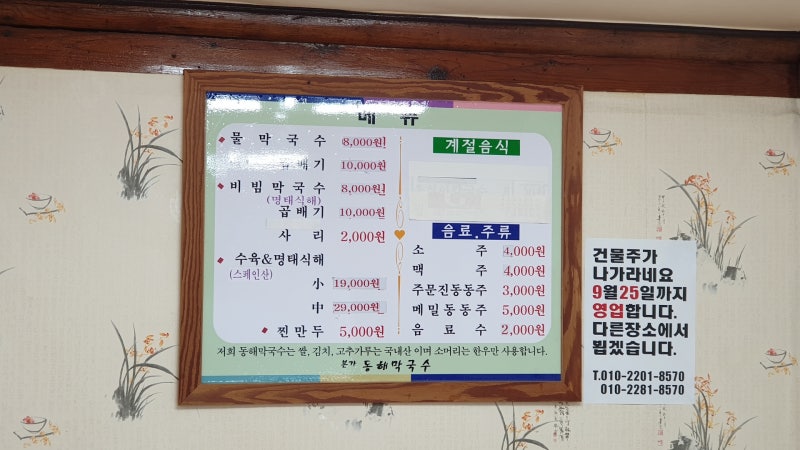 메뉴
물막국수 8,000원
곱배기 10,000원
비빔막국수 8,000원
(명태식해)
곱배기 10,000원
사리 2,000원
수육&명태식해
(스페인산)
小 19,000원
中 29,000원
찐만두 5,000원
계절음식
음료.주류
소주 4,000원
맥주 4,000원
주문진동동주 3,000원
메밀동동주 5,000원
음료수 2,000원
저희 동해막국수는 쌀, 김치, 고추가루는 국내산 이며 소머리는 한우만 사용합니다.
본가 동해막국수
건물주가
나가라네요
9월25일까지
영업합니다.
다른장소에서
뵙겠습니다.
T.010-2201-8570
010-2281-8570